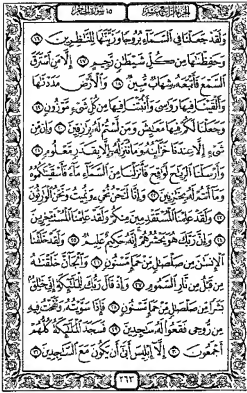 الجزء الرابع عشر ١٥ سورة الحجر
وَلَقَدْ جَعَلْنَا فِي ٱلسَّمَآءِ بُرُوجًا وَزَيَّنَّٰهَا لِلنَّٰظِرِينَ ١٦
وَحَفِظْنَٰهَا مِن كُلِّ شَيْطَٰنٍ رَّجِيمٍ ١٧ إِلَّا مَنِ ٱسْتَرَقَ
ٱلسَّمْعَ فَأَتْبَعَهُۥ شِهَابٌ مُّبِينٌ ١٨ وَٱلْأَرْضَ مَدَدْنَٰهَا
وَأَلْقَيْنَا فِيهَا رَوَٰسِيَ وَأَنۢبَتْنَا فِيهَا مِن كُلِّ شَيْءٍ مَّوْزُونٍ ١٩
وَجَعَلْنَا لَكُمْ فِيهَا مَعَٰيِشَ وَمَن لَّسْتُمْ لَهُۥ بِرَٰزِقِينَ ٢٠ وَإِن مِّن
شَيْءٍ إِلَّا عِندَنَا خَزَآئِنُهُۥ وَمَا نُنَزِّلُهُۥٓ إِلَّا بِقَدَرٍ مَّعْلُومٍ ٢١
وَأَرْسَلْنَا ٱلرِّيَٰحَ لَوَٰقِحَ فَأَنزَلْنَا مِنَ ٱلسَّمَآءِ مَآءً فَأَسْقَيْنَٰكُمُوهُ
وَمَآ أَنتُمْ لَهُۥ بِخَٰزِنِينَ ٢٢ وَإِنَّا لَنَحْنُ نُحْيِۦ وَنُمِيتُ وَنَحْنُ ٱلْوَٰرِثُونَ
٢٣ وَلَقَدْ عَلِمْنَا ٱلْمُسْتَقْدِمِينَ مِنكُمْ وَلَقَدْ عَلِمْنَا ٱلْمُسْتَـْٔخِرِينَ
٢٤ وَإِنَّ رَبَّكَ هُوَ يَحْشُرُهُمْ إِنَّهُۥ حَكِيمٌ عَلِيمٌ ٢٥ وَلَقَدْ خَلَقْنَا
ٱلْإِنسَٰنَ مِن صَلْصَٰلٍ مِّنْ حَمَإٍ مَّسْنُونٍ ٢٦ وَٱلْجَآنَّ خَلَقْنَٰهُ
مِن قَبْلُ مِن نَّارِ ٱلسَّمُومِ ٢٧ وَإِذْ قَالَ رَبُّكَ لِلْمَلَٰٓئِكَةِ إِنِّي خَٰلِقٌۢ
بَشَرًا مِّن صَلْصَٰلٍ مِّنْ حَمَإٍ مَّسْنُونٍ ٢٨ فَإِذَا سَوَّيْتُهُۥ وَنَفَخْتُ فِيهِ
مِن رُّوحِي فَقَعُوا۟ لَهُۥ سَٰجِدِينَ ٢٩ فَسَجَدَ ٱلْمَلَٰٓئِكَةُ كُلُّهُمْ
أَجْمَعُونَ ٣٠ إِلَّآ إِبْلِيسَ أَبَىٰٓ أَن يَكُونَ مَعَ ٱلسَّٰجِدِينَ ٣١
٢٦٣